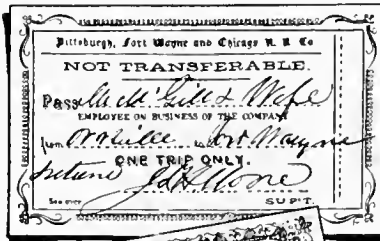 Pittsburgh, Fort Wayne and Chicago R. R. Co
NOT TRANSFERABLE.
Pass McGill & Wife
EMPLOYEE ON BUSINESS OF THE COMPANY
from to Fort Wayne
ONE TRIP ONLY.
return Moore
See over SUP'T.